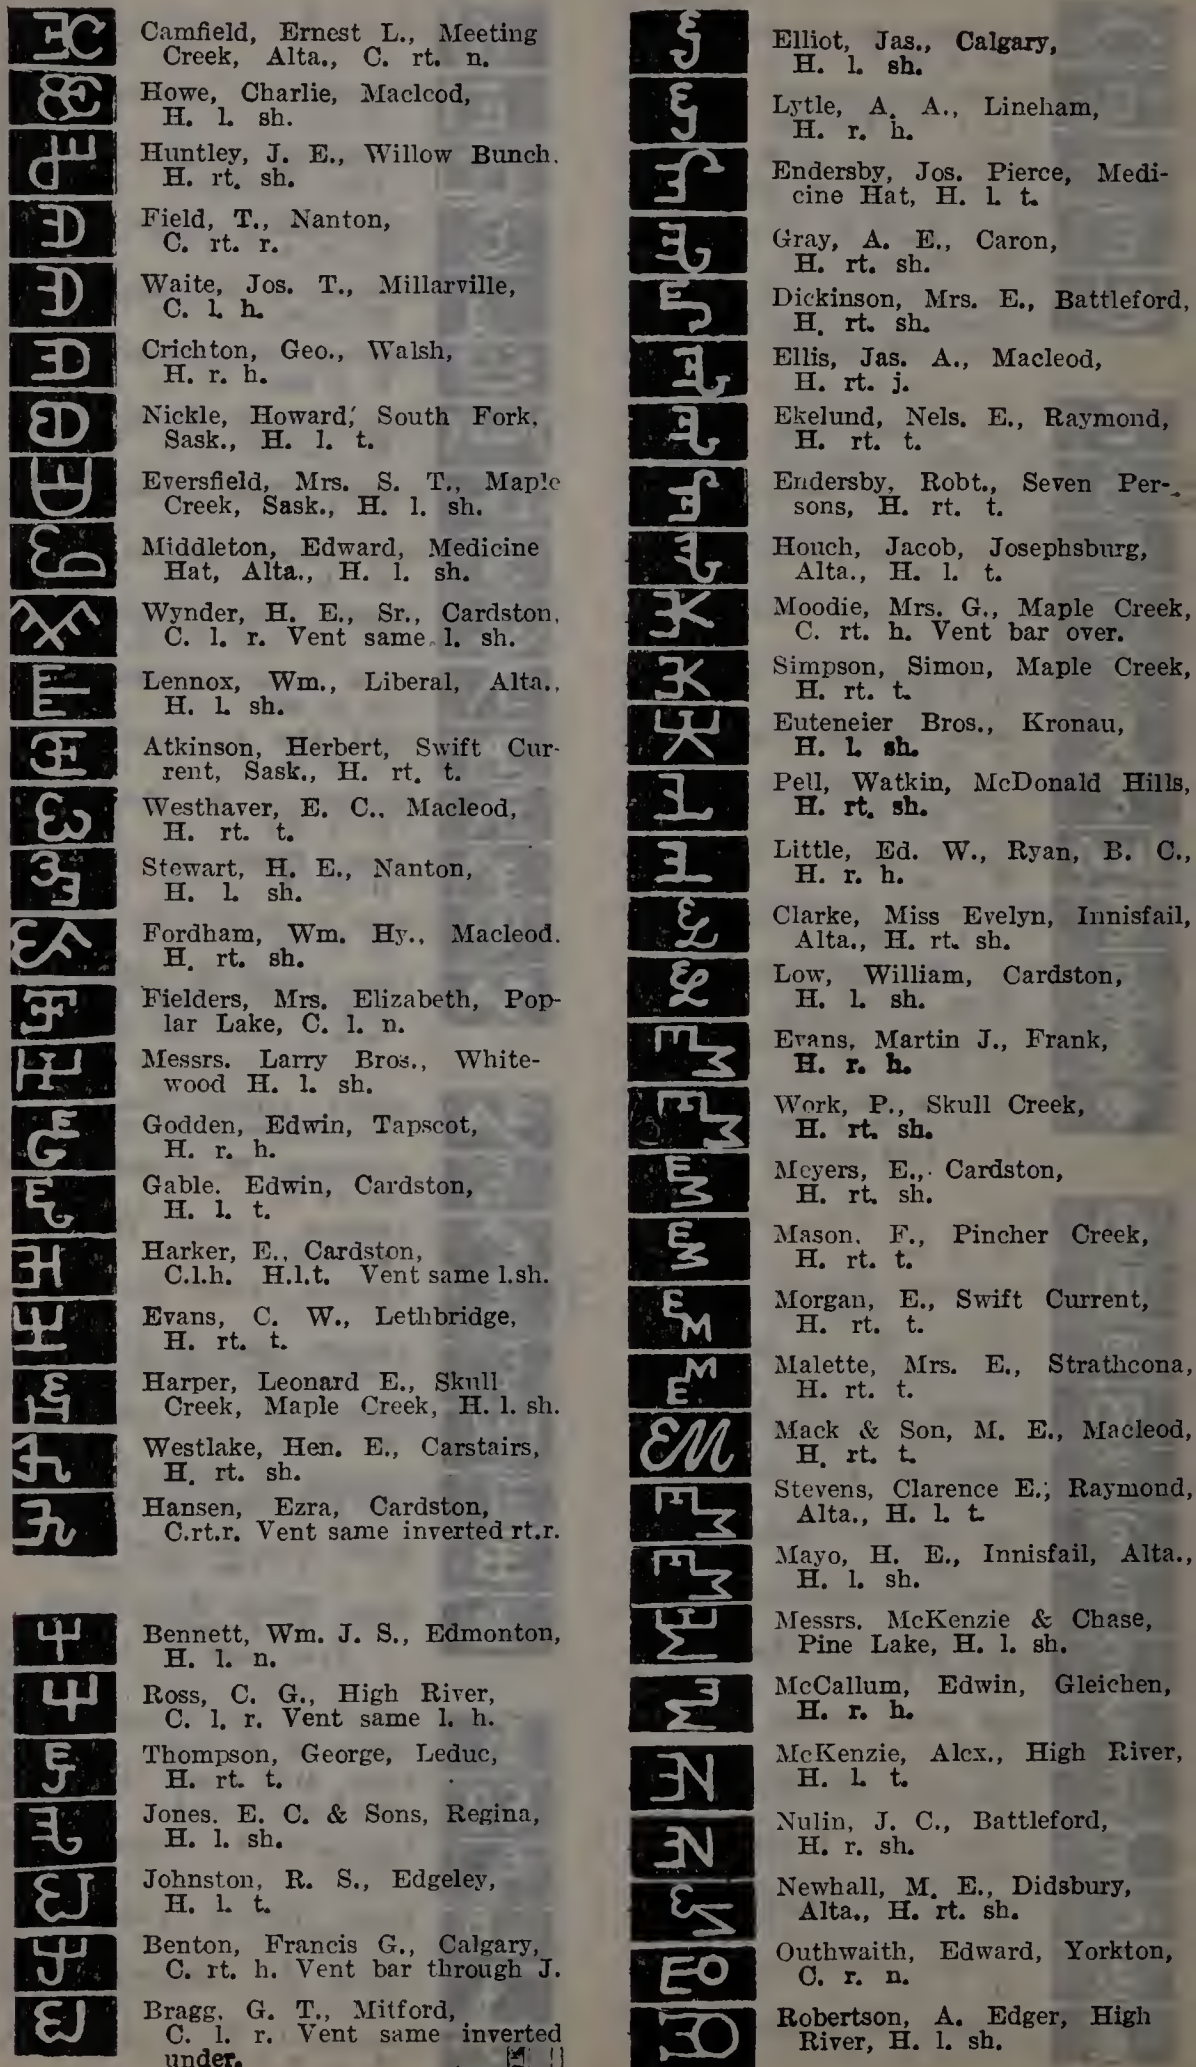 Camfield, Ernest L., Meeting
Creek, Alta., C. rt. n.
Howe, Charlie, Macleod,
H. l. sh.
Huntley, J. E., Willow Bunch,
H. rt. sh.
Field, T., Nanton,
C. rt. r.
Waite, Jos. T., Millarville,
C. l. h.
Crichton, Geo., Walsh,
H. r. h.
Nickle, Howard, South Fork,
Sask., H. l. t.
Eversfield, Mrs. S. T., Maple
Creek, Sask., H. l. sh.
Middleton, Edward, Medicine
Hat, Alta., H. l. sh.
Wynder, H. E., Sr., Cardston,
C. l. r. Vent same l. sh.
Lennox, Wm., Liberal, Alta.,
H. l. sh.
Atkinson, Herbert, Swift Cur-
rent, Sask., H. rt. t.
Westhaver, E. C., Macleod,
H. rt. t.
Stewart, H. E., Nanton,
H. l. sh.
Fordham, Wm. Hy., Macleod.
H. rt. sh.
Fielders, Mrs. Elizabeth, Pop-
lar Lake, C. l. n.
Messrs. Larry Bros., White-
wood H. l. sh.
Godden, Edwin, Tapscot,
H. r. h.
Gable. Edwin, Cardston,
H. l. t.
Harker, E., Cardston,
C.l.h. H.l.t. Vent same l.sh.
Evans, C. W., Lethbridge,
H. rt. t.
Harper, Leonard E., Skull
Creek, Maple Creek, H. l. sh.
Westlake, Hen. E., Carstairs,
H. rt. sh.
Hansen, Ezra, Cardston,
C.rt.r. Vent same inverted rt.r.
Bennett, Wm. J. S., Edmonton,
H. l. n.
Ross, C. G., High River,
C. l. r. Vent same l. h.
Thompson, George, Leduc,
H. rt. t.
Jones. E. C. & Sons, Regina,
H. l. sh.
Johnston, R. S., Edgeley,
H. l. t.
Benton, Francis G., Calgary,
C. rt. h. Vent bar through J.
Bragg. G. T., Mitford,
C. l. r. Vent same inverted
under.
Elliot, Jas., Calgary,
H. l. sh.
Lytle, A. A., Lineham,
H. r. h.
Endersby, Jos. Pierce, Medi-
cine Hat, H. l. t.
Gray, A. E., Caron,
H. rt. sh.
Dickinson, Mrs. E., Battleford,
H. rt. sh.
Ellis, Jas. A., Macleod,
H. rt. j.
Ekelund, Nels. E., Raymond,
H. rt. t.
Endersby, Robt., Seven Per-
sons, H. rt. t.
Houch, Jacob, Josephsburg,
Alta., H. l. t.
Moodie, Mrs. G., Maple Creek,
C. rt. h. Vent bar over.
Simpson, Simon, Maple Creek,
H. rt. t.
Euteneier Bros., Kronau,
H. l. sh.
Pell, Watkin, McDonald Hills,
H. rt. sh.
Little, Ed. W., Ryan, B. C.,
H. r. h.
Clarke, Miss Evelyn, Innisfail,
Alta., H. rt. sh.
Low, William, Cardston,
H. l. sh.
Evans, Martin J., Frank,
H. r. h.
Work, P., Skull Creek,
H. rt. sh.
Meyers, E., Cardston,
H. rt. sh.
Mason. F., Pincher Creek,
H. rt. t.
Morgan, E., Swift Current,
H. rt. t.
Malette, Mrs. E., Strathcona,
H. rt. t.
Mack & Son, M. E., Macleod,
H. rt. t.
Stevens, Clarence E., Raymond,
Alta., H. l. t.
Mayo, H. E., Innisfail, Alta.,
H. l. sh.
Messrs. McKenzie & Chase,
Pine Lake, H. l. sh.
McCallum, Edwin, Gleichen,
H. r. h.
McKenzie, Alex., High River,
H. l. t.
Nulin, J. C., Battleford,
H. r. sh.
Newhall, M. E., Didsbury,
Alta., H. rt. sh.
Outhwaith, Edward, Yorkton,
C. r. n.
Robertson, A. Edger, High
River, H. l. sh.